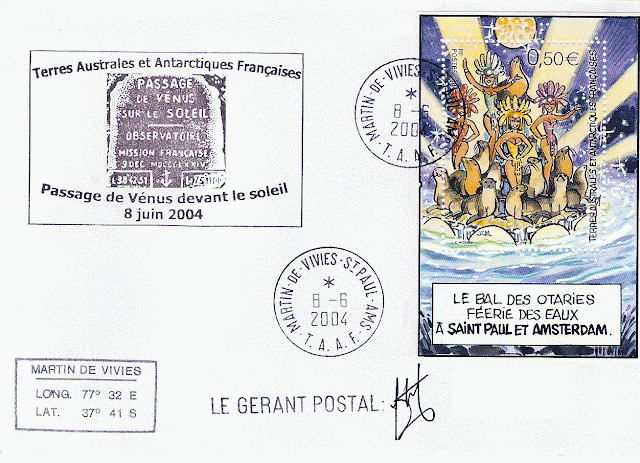 Terres Australes et Antarctiques Françaises
PASSAGE
DE VÉNUS
SUR LE SOLEIL
OBSERVATOIRE
MISSION FRANÇAISE
9 DEC MDCCCLXXIV
Passage de Vénus devant le soleil
8 juin 2004
MARTIN-DE-VIVIES-ST PAUL-AMS
8 -6
2004
T.A.A.F.
0,50 €
POSTES
RF
TERRES AUSTRALES ET ANTARCTIQUES FRANÇAISES
LE BAL DES OTARIES
FÉERIE DES EAUX
À SAINT PAUL ET AMSTERDAM.
MARTIN-DE-VIVIES-ST PAUL-AMS
8 -6
2004
T.A.A.F.
MARTIN DE VIVIES
LONG. 77° 32 E
LAT. 37° 41 S
LE GERANT POSTAL: